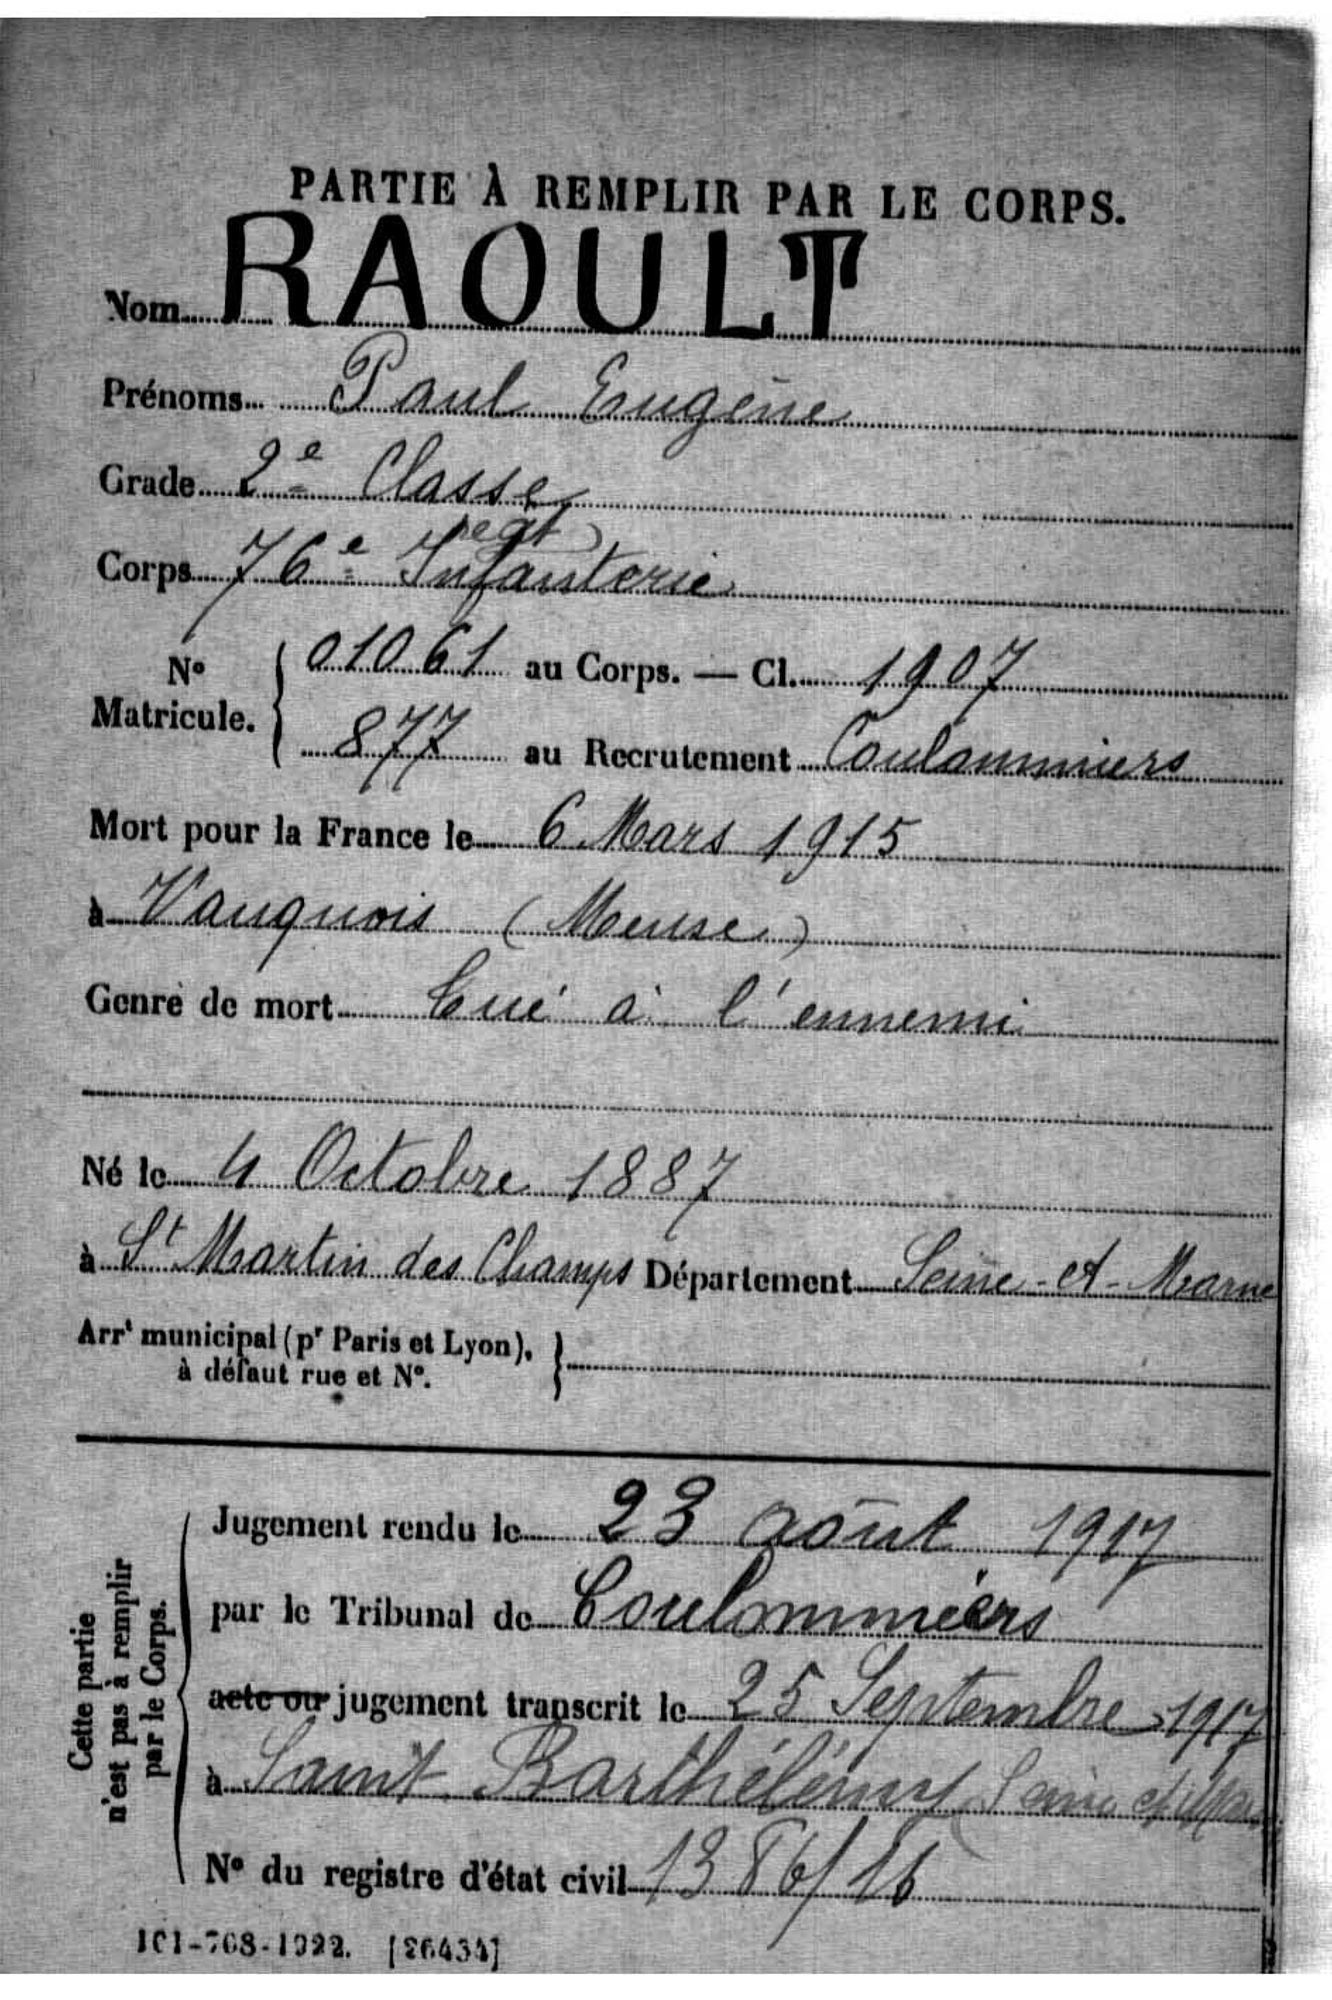 PARTIE À REMPLIR PAR LE CORPS.
Nom RAOULT
Prénoms Paul Eugène
Grade 2e Classe
regt
Corps 76e Infanterie
No Matricule. { 01061 au Corps. — Cl. 1907
877 au Recrutement Coulommiers
Mort pour la France le 6 Mars 1915
à Vauquois (Meuse)
Genre de mort Tué à l'ennemi
Né le 4 Octobre 1887
à St Martin des Champs Département Seine-et-Marne
Arrt municipal (pr Paris et Lyon), }
à défaut rue et No.
Cette partie
n'est pas à remplir
par le Corps.
Jugement rendu le 23 août 1917
par le Tribunal de Coulommiers
acte ou jugement transcrit le 25 Septembre 1917
à Saint Barthélémy Seine et
No du registre d'état civil 1386/16
101-708-1922. [26434]